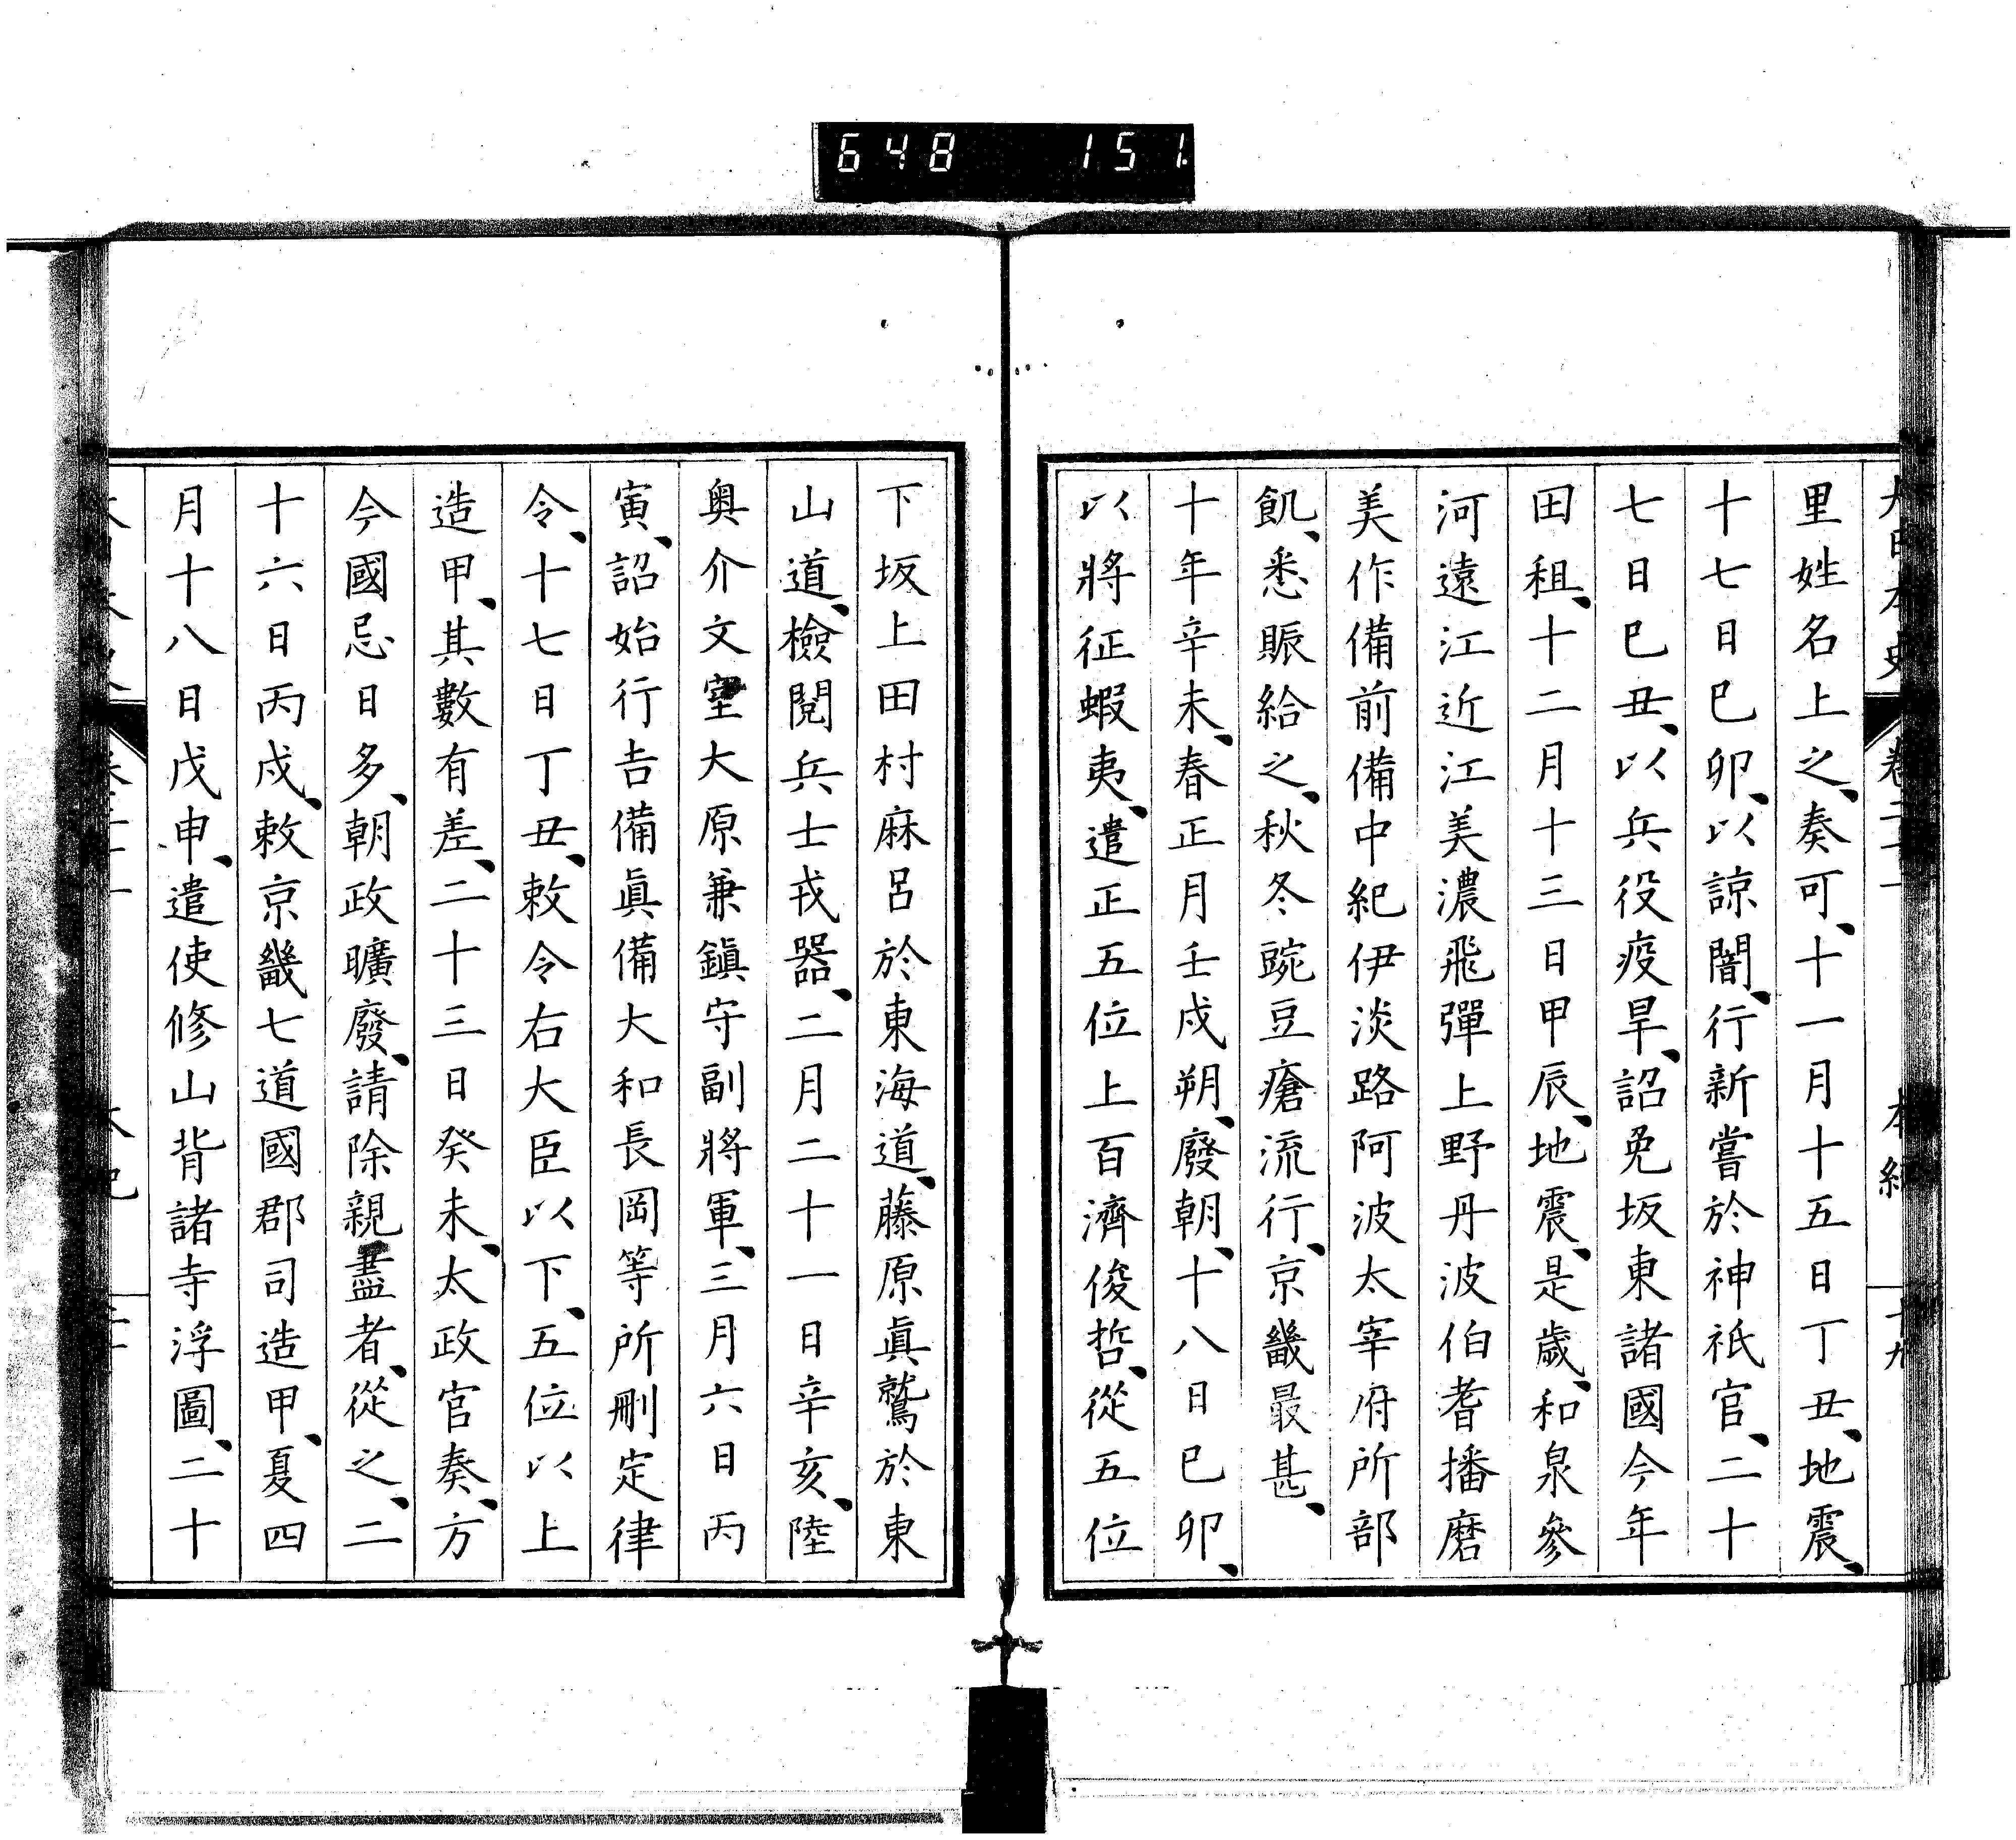 648 151
里姓名上之、奏可、十一月十五日丁丑、地震、
十七日己卯、以諒闇、行新嘗於神祇官、二十
七日己丑、以兵役疫旱、詔免坂東諸國今年
田租、十二月十三日甲辰、地震、是歲、和泉參
河遠江近江美濃飛彈上野丹波伯耆播磨
美作備前備中紀伊淡路阿波太宰府所部
飢、悉賑給之、秋冬豌豆瘡流行、京畿最甚、
十年辛未、春正月壬戌朔、廢朝、十八日己卯、
以將征蝦夷、遣正五位上百濟俊哲、從五位
下坂上田村麻呂於東海道、藤原眞鷲於東
山道、檢閱兵士戎器、二月二十一日辛亥、陸
奥介文室大原兼鎭守副將軍、三月六日丙
寅、詔始行吉備眞備大和長岡等所刪定律
令、十七日丁丑、敕令右大臣以下、五位以上
造甲、其數有差、二十三日癸未、太政官奏、方
今國忌日多、朝政曠廢、請除親盡者、從之、二
十六日丙戌、敕京畿七道國郡司造甲、夏四
月十八日戊申、遣使修山背諸寺浮圖、二十